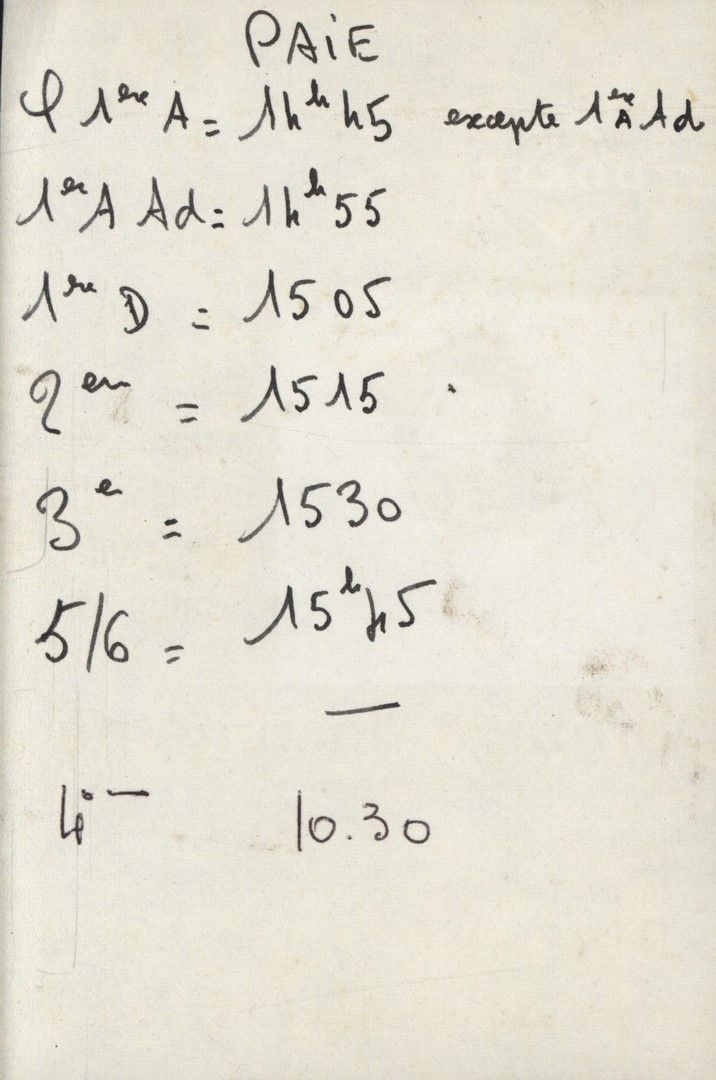 PAIE
φ 1ere A = 14h45 excepte 1ere A Ad
1ere A Ad = 14h55
1ere D = 1505
2em = 1515
3e = 1530
5/6 = 15h45
—
4° — 10.30